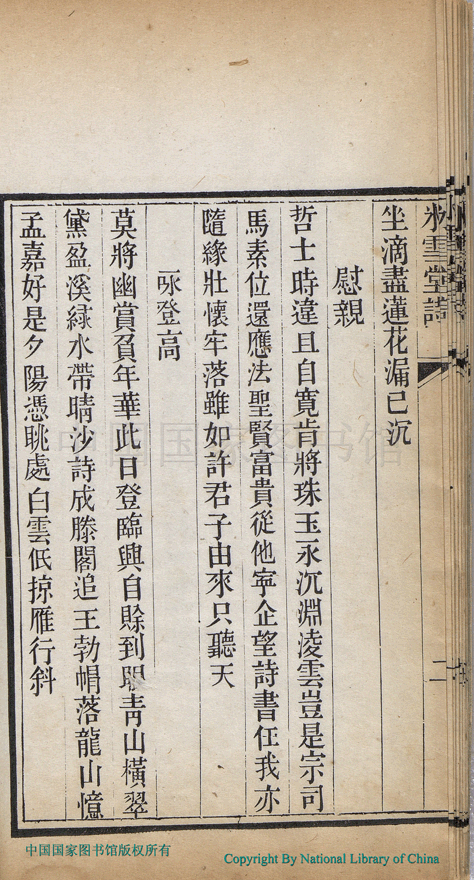 氷雪堂詩
二
坐滴盡蓮花漏已沉
慰親
哲士時違且自寬肯將珠玉永沉淵凌雲豈是宗司
馬素位還應法聖賢富貴從他寧企望詩書任我亦
隨緣壯懷牢落雖如許君子由來只聽天
咏登高
莫將幽賞負年華此日登臨興自賖到眼青山橫翠
黛盈溪緑水帶晴沙詩成滕閣追王勃帽落龍山憶
孟嘉好是夕陽憑眺處白雲低掠雁行斜
中国国家图书馆
中国国家图书馆版权所有
Copyright By National Library of China